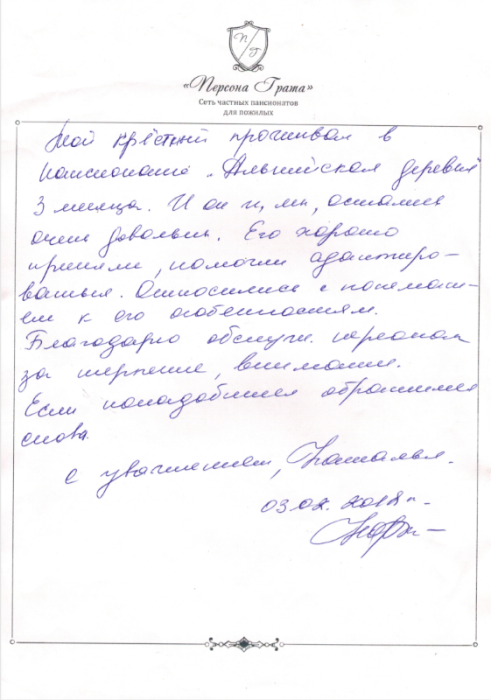 П Г
«Персона Грата»
Сеть частных пансионатов
для пожилых
Мой крёстный проживал в
пансионате „Альпийская деревня"
3 месяца. И он и, мы, остались
очень довольны. Его хорошо
приняли, помогли адаптиро-
ваться. Относились с понимани-
ем к его особенностям.
Благодарю обслуж. персонал
за терпение, внимание.
Если понадобится обратимся
снова.
С уважением, Наталья.
03.02.2018 г.